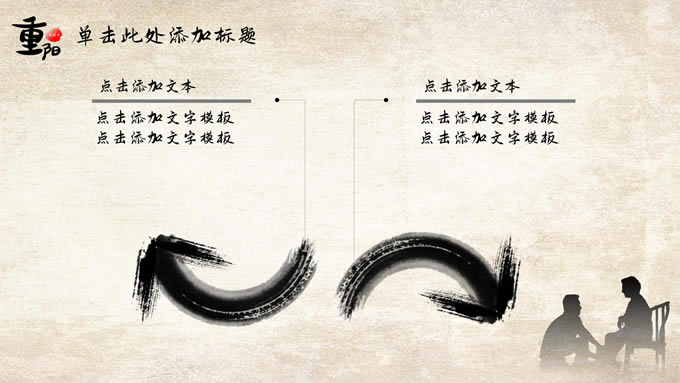 重阳
单击此处添加标题
点击添加文本
点击添加文字模板
点击添加文字模板
点击添加文本
点击添加文字模板
点击添加文字模板